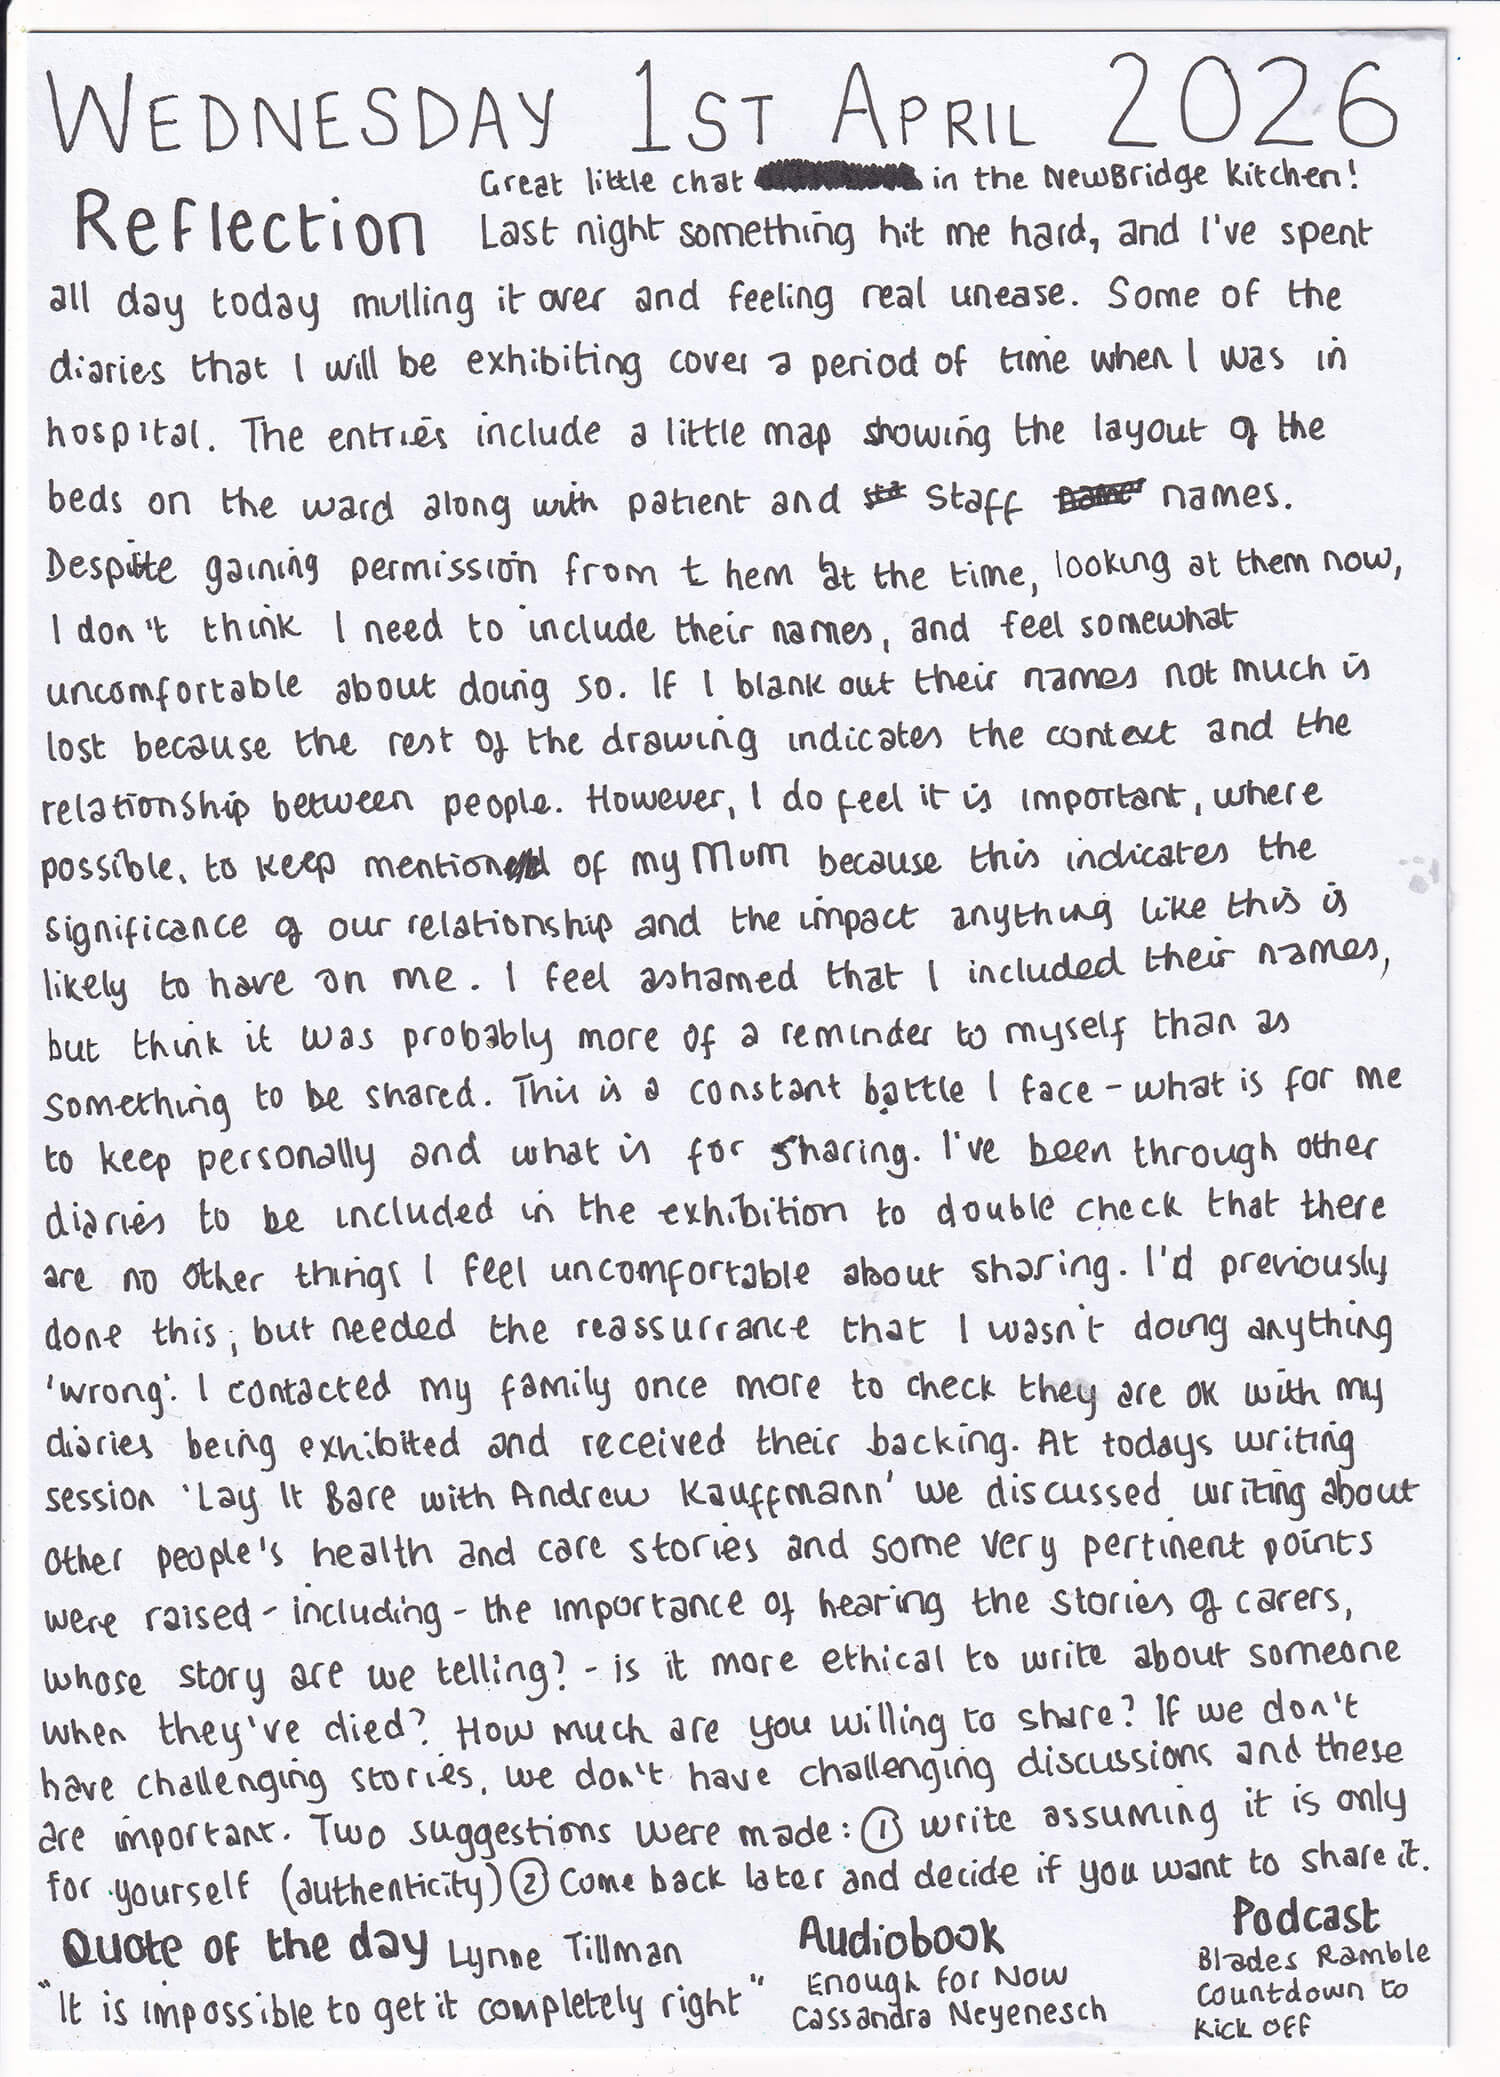 WEDNESDAY 1ST APRIL 2026
Great little chat in the NewBridge Kitchen!
Reflection Last night something hit me hard, and I've spent
all day today mulling it over and feeling real unease. Some of the
diaries that I will be exhibiting cover a period of time when I was in
hospital. The entries include a little map showing the layout of the
beds on the ward along with patient and staff names.
Despite gaining permission from them at the time, looking at them now,
I don't think I need to include their names, and feel somewhat
uncomfortable about doing so. If I blank out their names not much is
lost because the rest of the drawing indicates the context and the
relationship between people. However, I do feel it is important, where
possible, to keep mention of my Mum because this indicates the
significance of our relationship and the impact anything like this is
likely to have on me. I feel ashamed that I included their names,
but think it was probably more of a reminder to myself than as
something to be shared. This is a constant battle I face - what is for me
to keep personally and what is for sharing. I've been through other
diaries to be included in the exhibition to double check that there
are no other things I feel uncomfortable about sharing. I'd previously
done this, but needed the reassurrance that I wasn't doing anything
'wrong'. I contacted my family once more to check they are ok with my
diaries being exhibited and received their backing. At todays writing
session 'Lay It Bare with Andrew Kauffmann' we discussed writing about
other people's health and care stories and some very pertinent points
were raised - including - the importance of hearing the stories of carers,
whose story are we telling? - is it more ethical to write about someone
when they've died? How much are you willing to share? If we don't
have challenging stories, we don't have challenging discussions and these
are important. Two suggestions were made: ① write assuming it is only
for yourself (authenticity) ② Come back later and decide if you want to share it.
Quote of the day Lynne Tillman
"It is impossible to get it completely right"
Audiobook
Enough For Now
Cassandra Neyenesch
Podcast
Blades Ramble
Countdown to
Kick Off